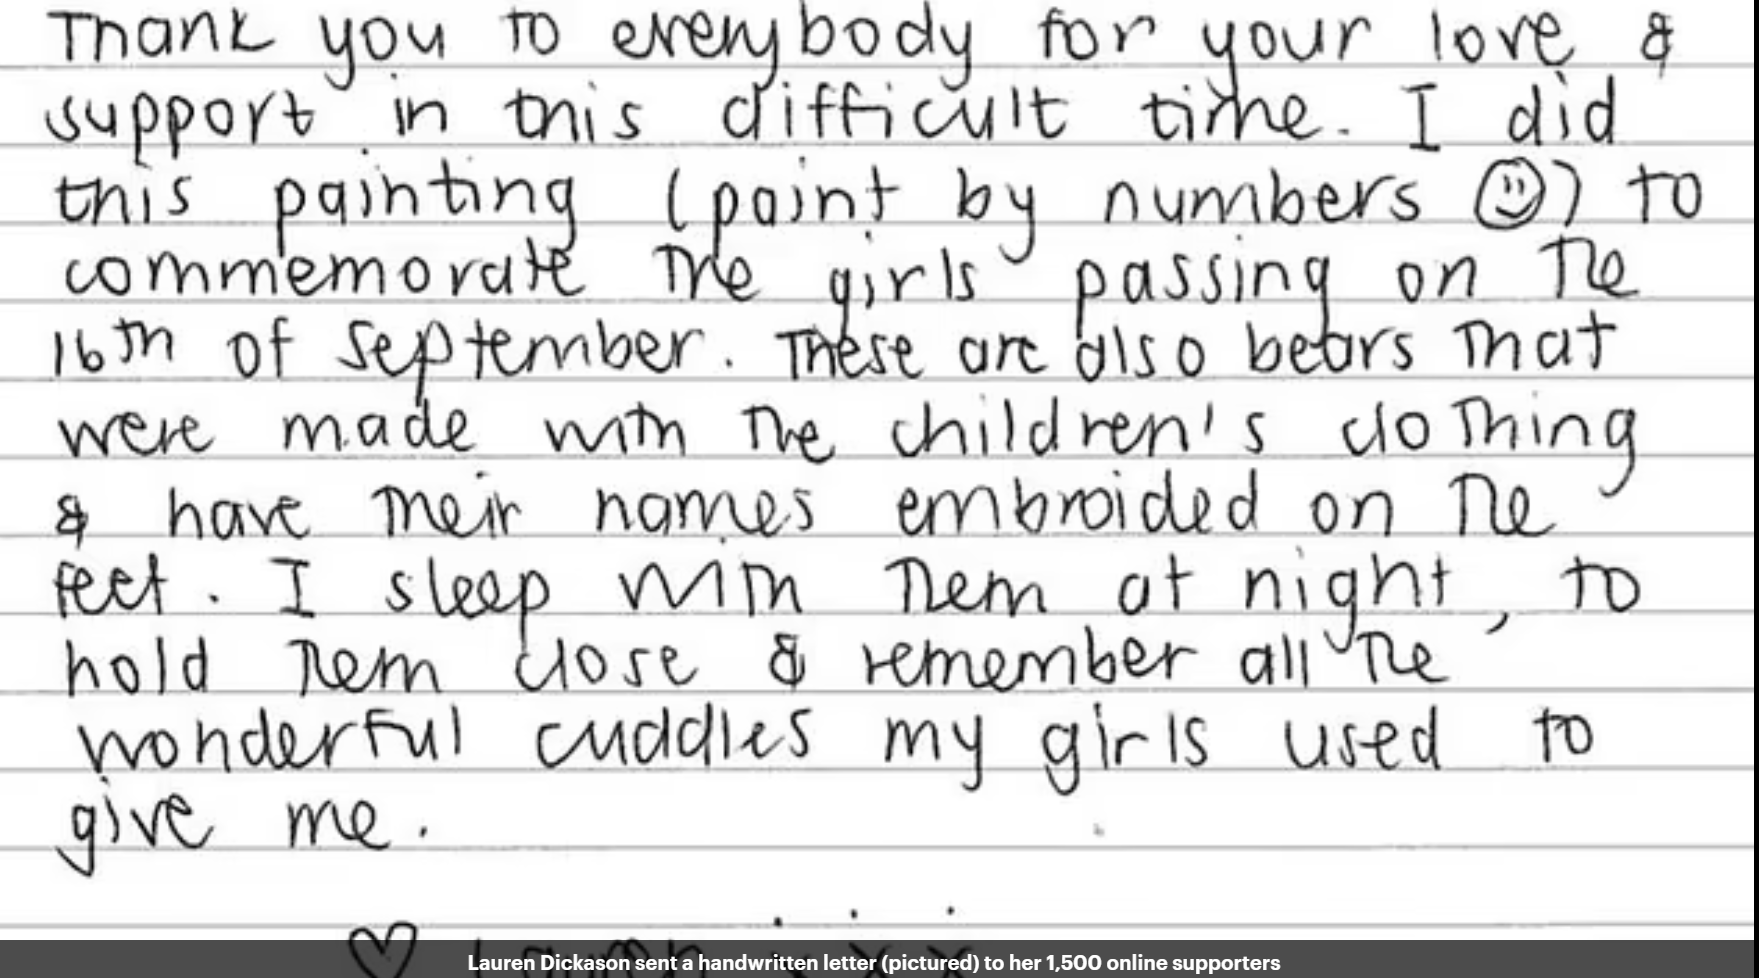 Thank you to everybody for your love &
support in this difficult time. I did
this painting (paint by numbers ☺) to
commemorate the girls passing on the
16th of September. These are also bears that
were made with the children's clothing
& have their names embroided on the
feet. I sleep with them at night, to
hold them close & remember all the
wonderful cuddles my girls used to
give me.
♡
Lauren Dickason sent a handwritten letter (pictured) to her 1,500 online supporters